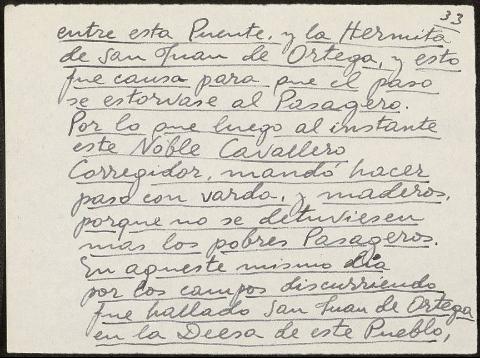 33
entre esta Puente, y la Hermita
de San Juan de Ortega, y esto
fue causa para que el paso
se estorvase al Pasagero.
Por lo que luego al instante
este Noble Cavallero
Corregidor, mandó hacer
paso con varda, y maderos,
porque no se detuviesen
mas los pobres Pasageros.
En aqueste mismo dia
por los campos discurriendo
fue hallado San Juan de Ortega
en la Deesa de este Pueblo,